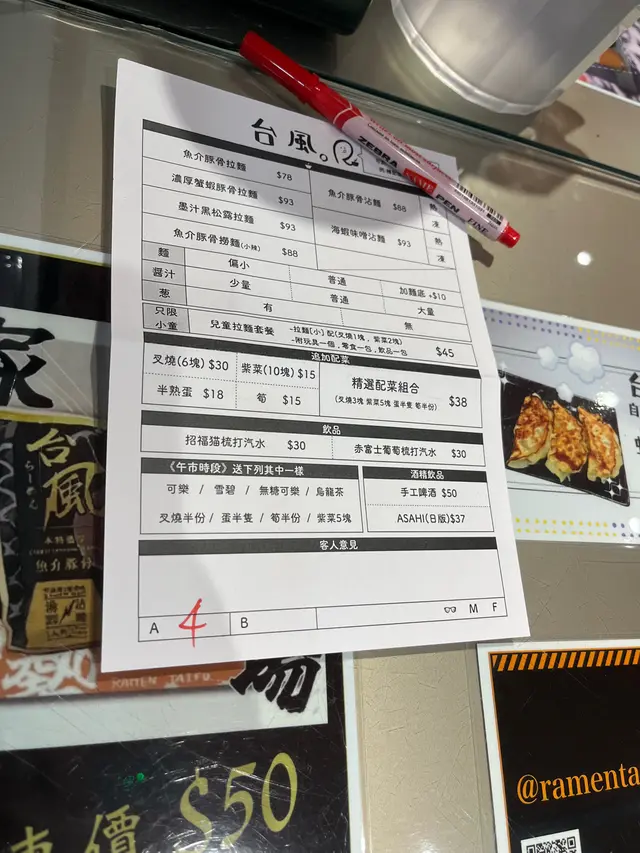 台風。
ZEBRA
PEN FINE
魚介豚骨拉麵 $78
濃厚蟹蝦豚骨拉麵 $93
墨汁黑松露拉麵 $93
魚介豚骨撈麵(小辣) $88
魚介豚骨沾麵 $88 熱 凍
海蝦味噌沾麵 $93 熱 凍
麵 偏小 普通 加麵底 +$10
醬汁 少量 普通 大量
葱 有 無
只限小童 兒童拉麵套餐 -拉麵[小] 配(叉燒1塊, 紫菜2塊) $45
-附玩具一個, 零食一包, 飲品一包
追加配菜
叉燒(6塊) $30 紫菜(10塊) $15
半熟蛋 $18 筍 $15
精選配菜組合 $38
(叉燒3塊 紫菜5塊 蛋半隻 筍半份)
飲品
招福猫梳打汽水 $30 赤富士葡萄梳打汽水 $30
《午市時段》送下列其中一樣
可樂 / 雪碧 / 無糖可樂 / 烏龍茶
叉燒半份 / 蛋半隻 / 筍半份 / 紫菜5塊
酒精飲品
手工啤酒 $50
ASAHI(日版) $37
客人意見
A 4 B M F
家
台風
らーめん
魚介豚骨
RAMEN TAIFU
場
價 $50
台
自
@ramenta